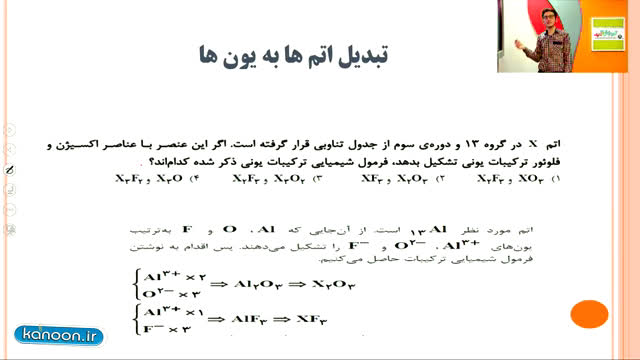 تبدیل اتم ها به یون ها
اتم X در گروه ۱۳ و دوره‌ی سوم از جدول تناوبی قرار گرفته است. اگر این عنصر با عناصر اکسیژن و
فلوئور ترکیبات یونی تشکیل بدهد، فرمول شیمیایی ترکیبات یونی ذکر شده کدام‌اند؟
۱) XO۳ و X۲F۳ ۲) X۲O۳ و XF۳ ۳) X۳O۲ و X۳F۲ ۴) X۳O و X۲F۲
اتم مورد نظر ۱۳Al است. از آن‌جایی که Al، O و F به‌ترتیب
یون‌های Al۳+، O۲− و F− را تشکیل می‌دهند. پس اقدام به نوشتن
فرمول شیمیایی ترکیبات حاصل می‌کنیم.
Al۳+ × ۲
⇒ Al۲O۳ ⇒ X۲O۳
O۲− × ۳
Al۳+ × ۱
⇒ AlF۳ ⇒ XF۳
F− × ۳
kanoon.ir